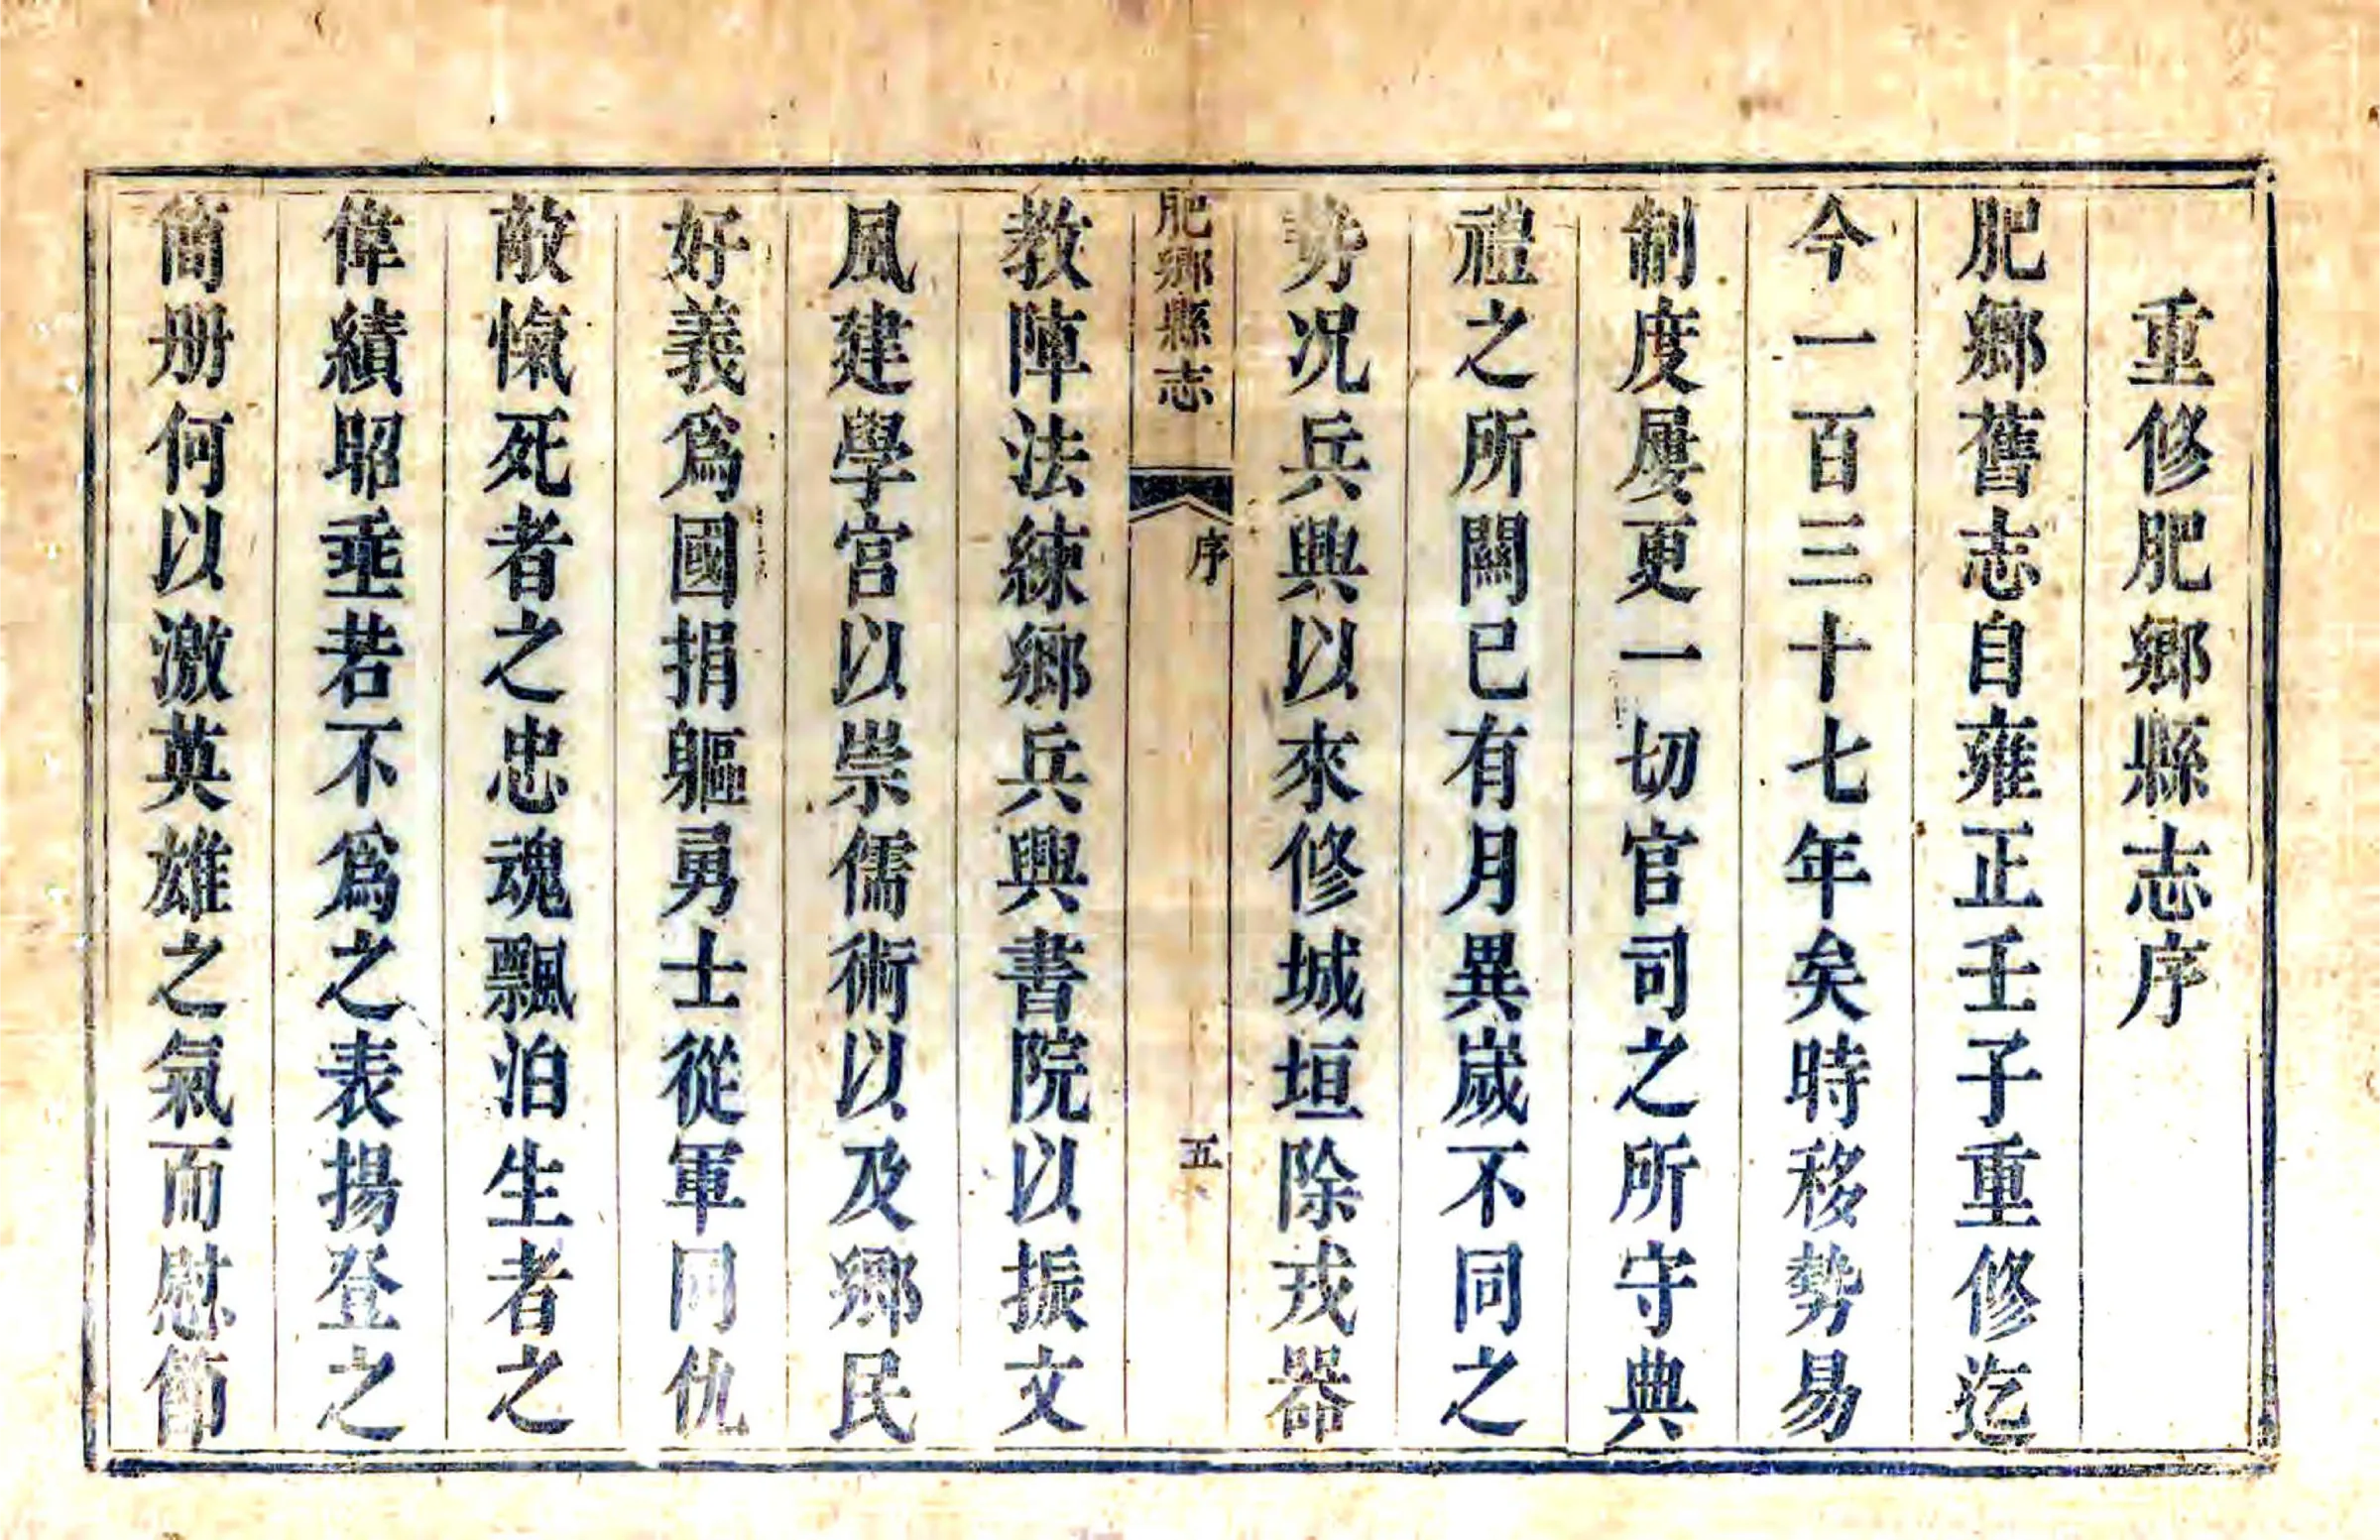 重修肥鄉縣志序
肥鄉舊志自雍正壬子重修迄
今一百三十七年矣時移勢易
制度屢更一切官司之所守典
禮之所關已有月異歲不同之
势况兵興以來修城垣除戎器
肥鄉縣志
序
五
教陣法練鄉兵興書院以振文
風建學宫以崇儒術以及鄉民
好義爲國捐軀勇士從軍同仇
敵愾死者之忠魂飄泊生者之
偉績昭垂若不爲之表揚登之
簡册何以激英雄之氣而慰節